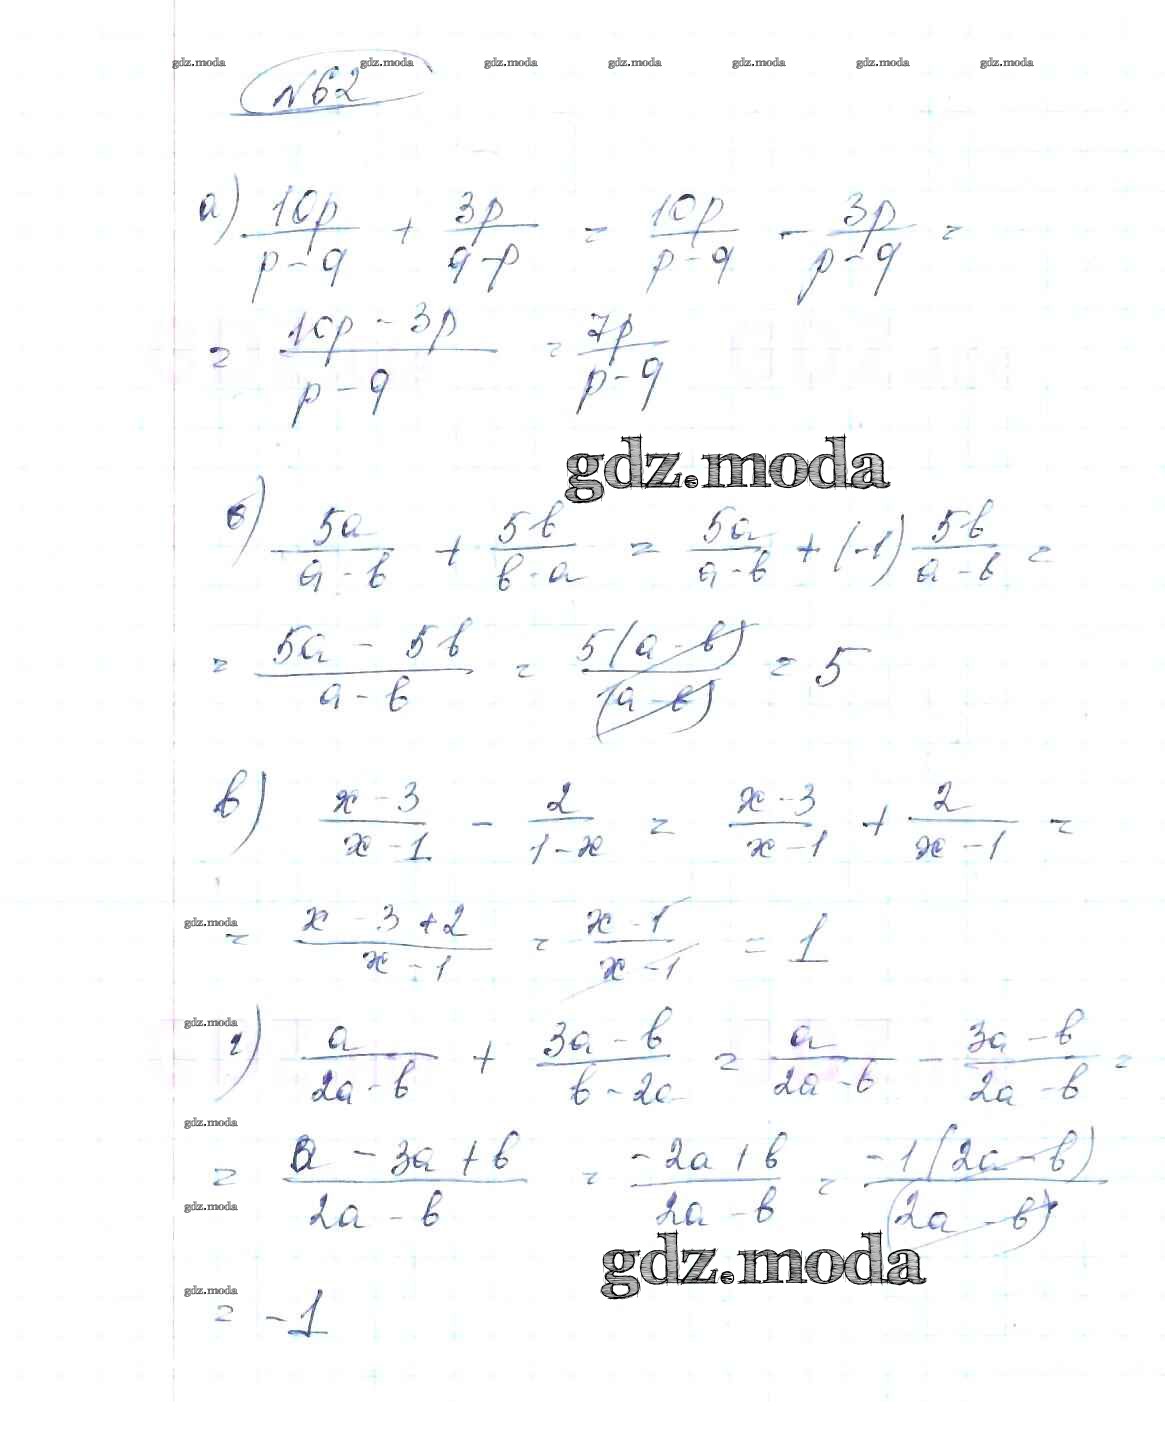 gdz.moda gdz.moda gdz.moda gdz.moda gdz.moda gdz.moda gdz.moda
№62
а) 10p/(p-q) + 3p/(q-p) = 10p/(p-q) - 3p/(p-q) =
= (10p - 3p)/(p-q) = 7p/(p-q)
gdz.moda
б) 5a/(a-b) + 5b/(b-a) = 5a/(a-b) + (-1) 5b/(a-b) =
= (5a - 5b)/(a-b) = 5(a-b)/(a-b) = 5
в) (x-3)/(x-1) - 2/(1-x) = (x-3)/(x-1) + 2/(x-1) =
gdz.moda
= (x-3+2)/(x-1) = (x-1)/(x-1) = 1
gdz.moda
г) a/(2a-b) + (3a-b)/(b-2a) = a/(2a-b) - (3a-b)/(2a-b) =
gdz.moda
= (a-3a+b)/(2a-b) = (-2a+b)/(2a-b) = -1(2a-b)/(2a-b)
gdz.moda
gdz.moda
gdz.moda
= -1